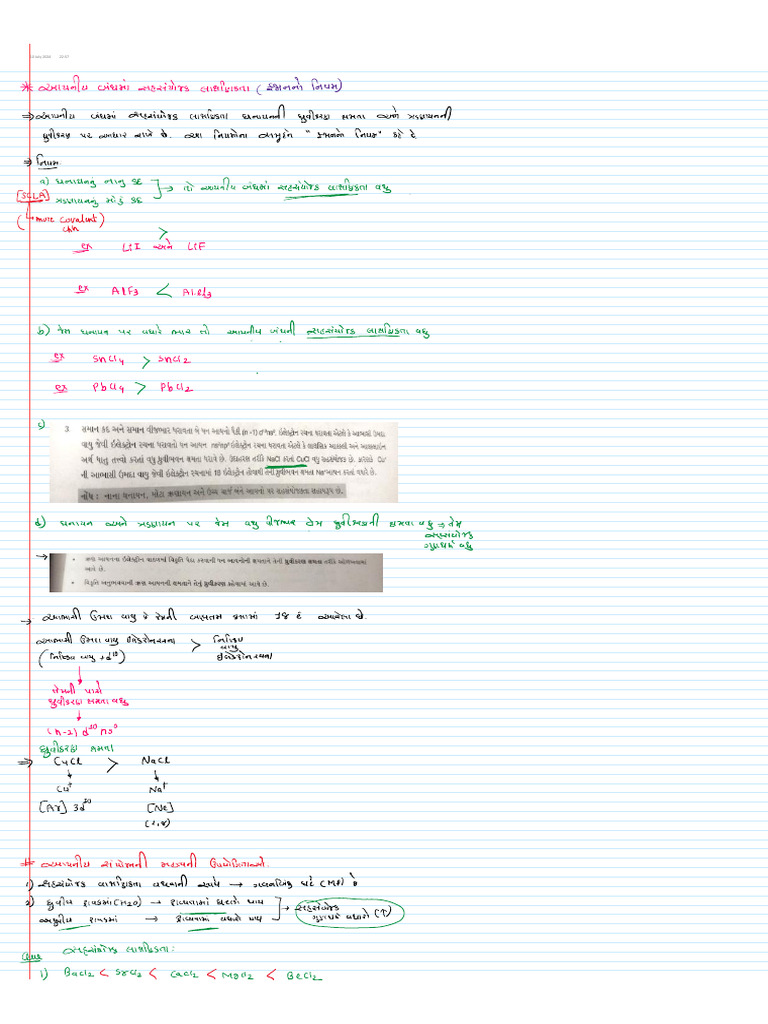 * આયનીય બંધમાં સહસંયોજક લાક્ષણિકતા (ફજાનનો નિયમ)
⇒ આયનીય બંધમાં સહસંયોજક લાક્ષણિકતા ધનાયનની ધ્રુવીકરણ ક્ષમતા અને ઋણાયનની
ધ્રુવીકરણ પર આધાર રાખે છે. આ નિયમોના સમૂહને "ફજાનનો નિયમ" કહે છે
⇒ નિયમ
a) ધનાયનનું નાનુ કદ
→ તો આયનીય બંધમાં સહસંયોજક લાક્ષણિકતા વધુ
[SCLA] ઋણાયનનું મોટું કદ
(more covalent
chr)
ex LiI > અને LiF
ex AlF3 < AlCl3
b) જેમ ધનાયન પર વધારે ભાર તો આયનીય બંધની સહસંયોજક લાક્ષણિકતા વધુ
ex SnCl4 > SnCl2
ex PbCl4 > PbCl2
c)
3 સમાન કદ અને સમાન વીજભાર ધરાવતા બે ધન આયનો પૈકી (n-1) dⁿns⁰ ઇલેક્ટ્રોન રચના ધરાવતા એટલે કે આભાસી ઉમદા
વાયુ જેવી ઇલેક્ટ્રોન રચના ધરાવતો ધન આયન ns²np⁶ ઇલેક્ટ્રોન રચના ધરાવતા એટલે કે લાક્ષણિક આલ્કલી અને આલ્કલાઇન
અર્થ ધાતુ તત્ત્વો કરતાં વધુ ધ્રુવીભવન ક્ષમતા ધરાવે છે. ઉદાહરણ તરીકે NaCl કરતાં CuCl વધુ સહસંયોજક છે. કારણકે Cu⁺
ની આભાસી ઉમદા વાયુ જેવી ઇલેક્ટ્રોન રચનામાં 18 ઇલેક્ટ્રોન હોવાથી તેની ધ્રુવીભવન ક્ષમતા Na⁺આયન કરતાં વધારે છે.
નોંધ : નાના ધનાયન, મોટા ઋણાયન અને ઉચ્ચ ચાર્જ બંને આયનો પર સહસંયોજકતા સહાયરૂપ છે.
d) ધનાયન અને ઋણાયન પર જેમ વધુ વીજભાર તેમ ધ્રુવીકરણની ક્ષમતા વધુ ⇒ તેમ
સહસંયોજક
ગુણધર્મ વધુ
→ • ઋણ આયનના ઇલેક્ટ્રોન વાદળમાં વિકૃતિ પેદા કરવાની ધન આયનોની ક્ષમતાને તેની ધ્રુવીકરણ ક્ષમતા તરીકે ઓળખવામાં
આવે છે.
• વિકૃતિ અનુભવવાની ઋણ આયનની ક્ષમતાને તેનું ધ્રુવીકરણ કહેવામાં આવે છે.
→ આભાસી ઉમદા વાયુ કે જેની બાહ્યતમ કક્ષામાં 18 e⁻ આવેલા છે.
આભાસી ઉમદા વાયુ ઇલેક્ટ્રોનરચના > નિષ્ક્રિય
વાયુ
(નિષ્ક્રિય વાયુ + d¹⁰) ઇલેક્ટ્રોનરચના
તેમની પાસે
ધ્રુવીકરણ ક્ષમતા વધુ
(n-1) d¹⁰ ns⁰
ધ્રુવીકરણ ક્ષમતા
⇒ CuCl > NaCl
Cu⁺ Na⁺
[Ar] 3d¹⁰ [Ne]
(2,8)
* આયનીય સંયોજનની મહત્વની ઉપયોગિતાઓ.
1) સહસંયોજક લાક્ષણિકતા વધવાની સાથે → ગલનબિંદુ ઘટે (MP) છે
2) ધ્રુવીય દ્રાવકમાં (H2O) → દ્રાવ્યતામાં ઘટાડો થાય
→ સહસંયોજક
ગુણધર્મ વધારો (↑)
અધ્રુવીય દ્રાવકમાં → દ્રાવ્યતામાં વધારો થાય
Que સહસંયોજક લાક્ષણિકતા:
1) BaCl2 < SrCl2 < CaCl2 < MgCl2 < BeCl2